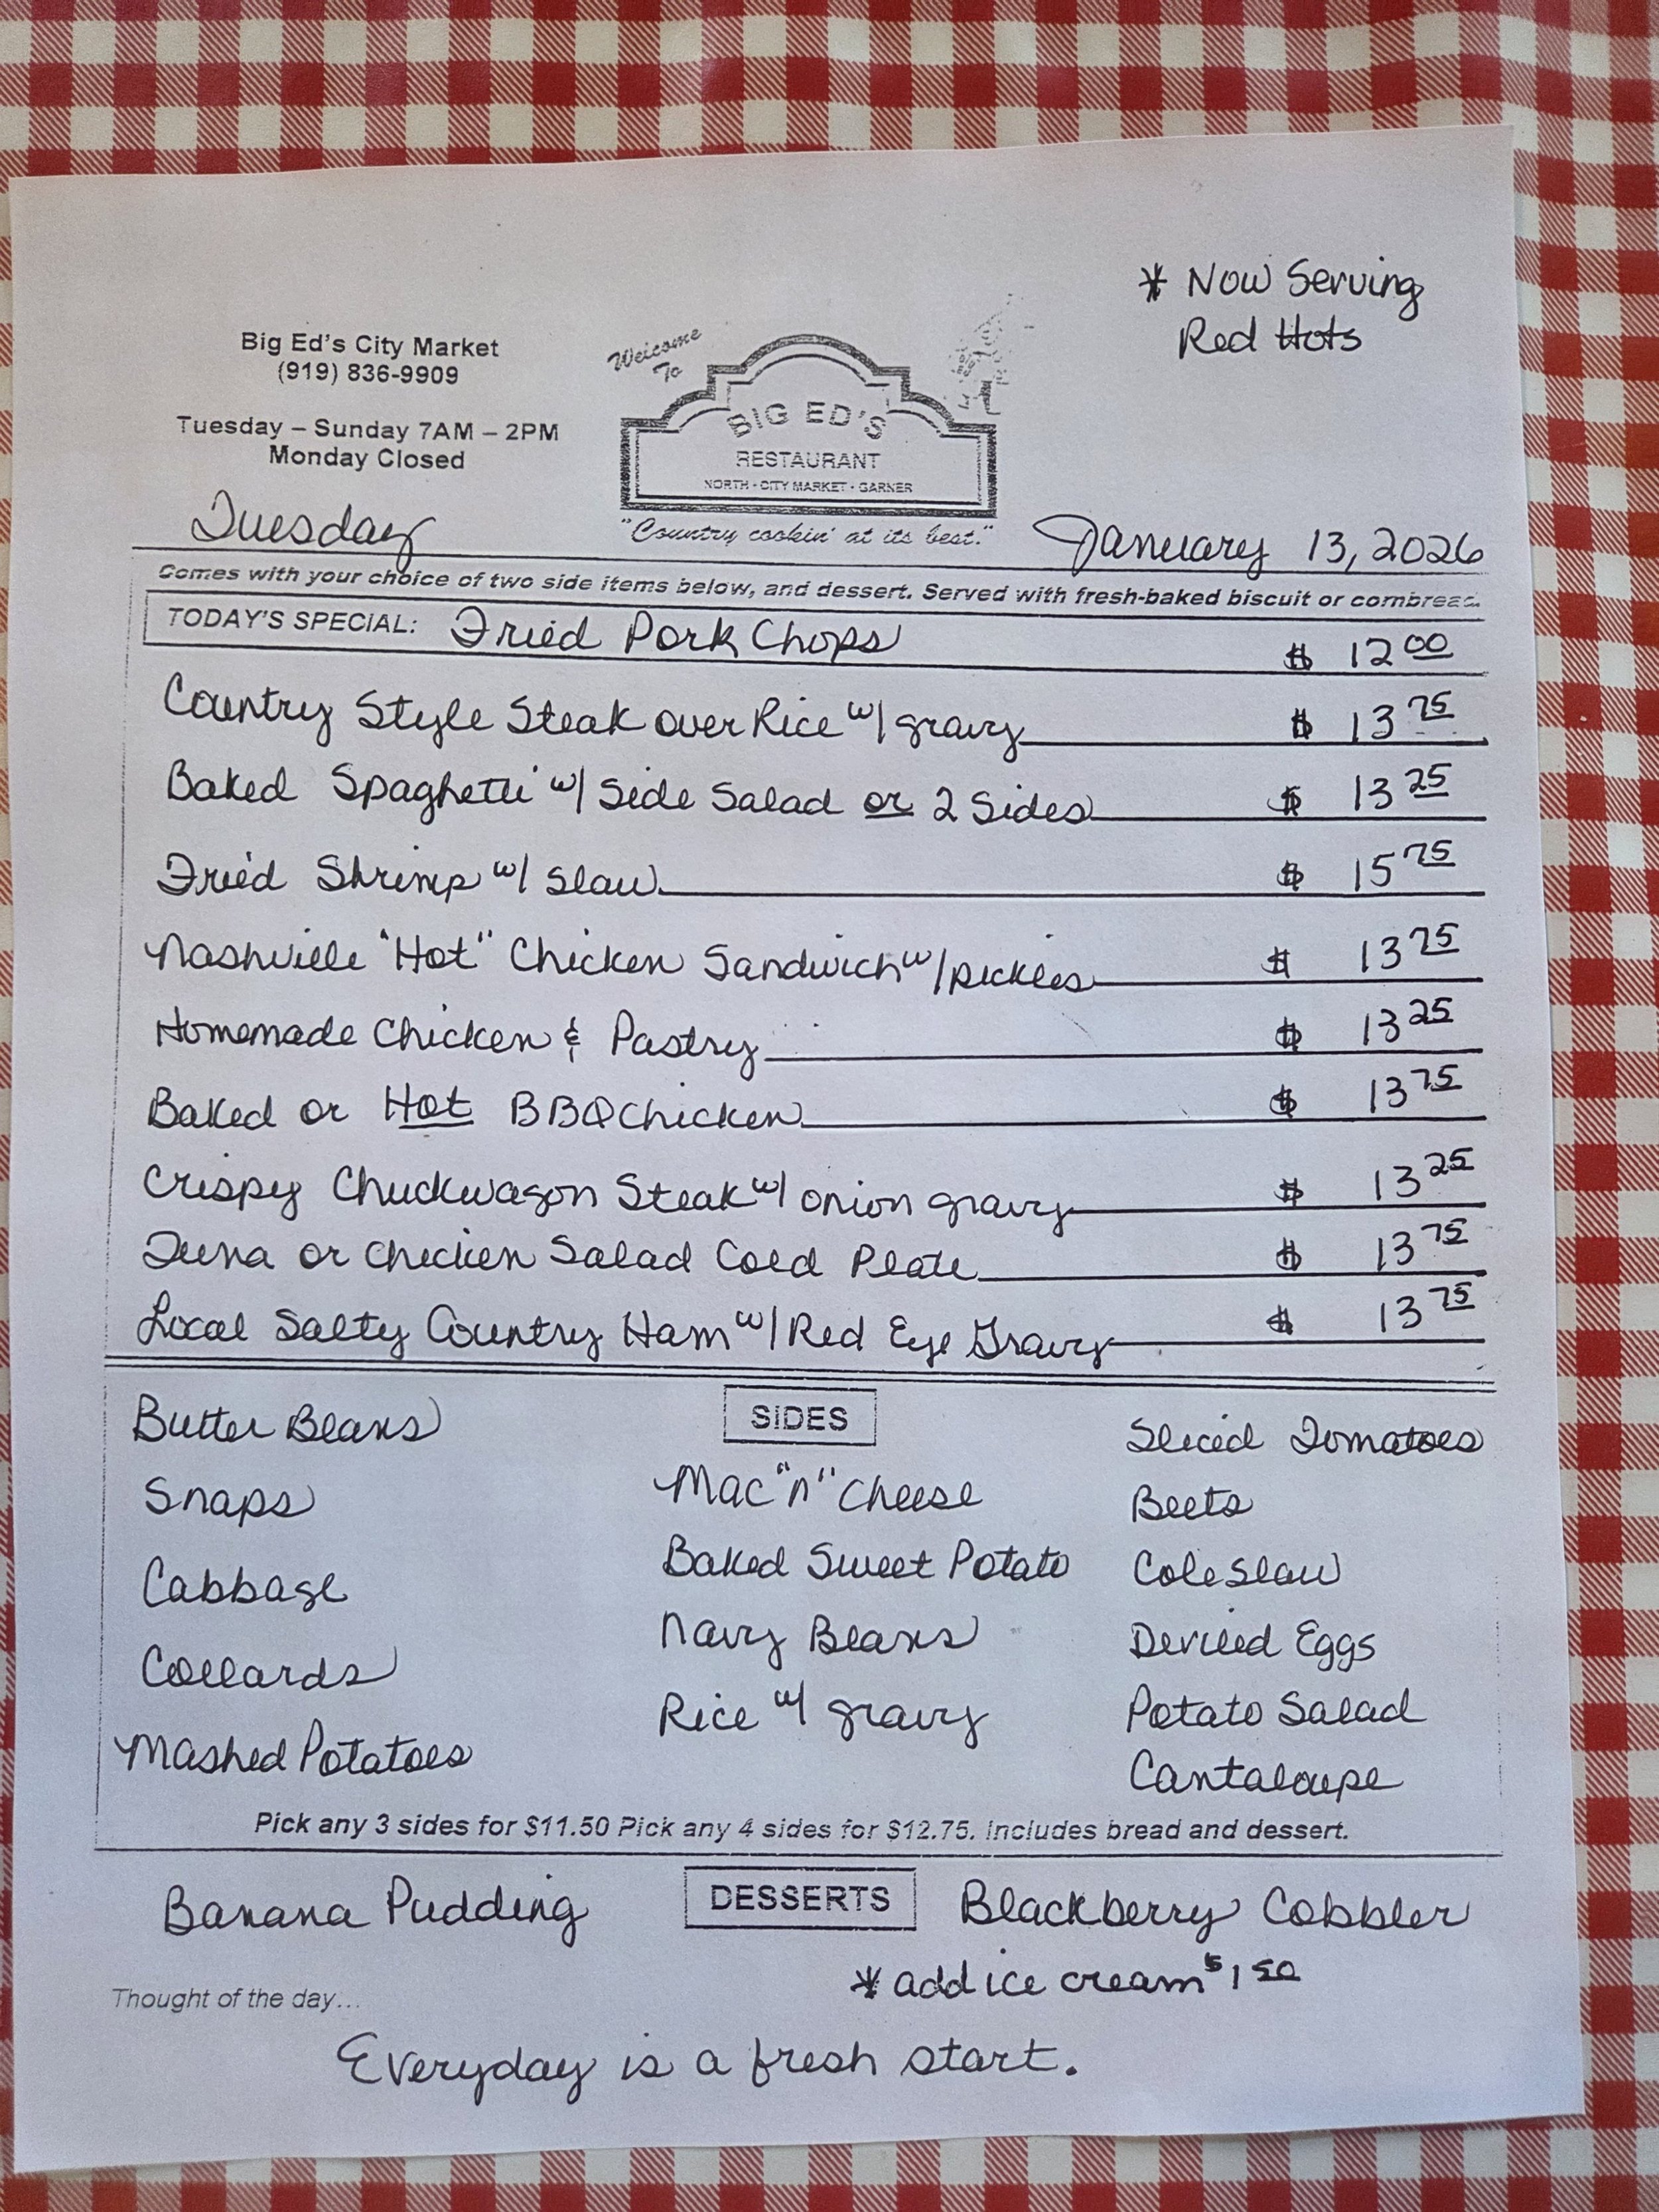 * Now Serving
Red Hots
Big Ed's City Market
(919) 836-9909
Tuesday – Sunday 7AM – 2PM
Monday Closed
Welcome
To
BIG ED'S
RESTAURANT
NORTH • CITY MARKET • GARNER
"Country cookin' at its best."
Tuesday
January 13, 2026
Comes with your choice of two side items below, and dessert. Served with fresh-baked biscuit or cornbread.
TODAY'S SPECIAL: Fried Pork Chops $ 12 00
Country Style Steak over Rice w/ gravy $ 13 75
Baked Spaghetti w/ Side Salad or 2 Sides $ 13 25
Fried Shrimp w/ Slaw $ 15 75
Nashville "Hot" Chicken Sandwich w/pickles $ 13 75
Homemade Chicken & Pastry $ 13 25
Baked or Hot BBQ Chicken $ 13 75
Crispy Chuckwagon Steak w/ onion gravy $ 13 25
Tuna or Chicken Salad Cold Plate $ 13 75
Local Salty Country Ham w/ Red Eye Gravy $ 13 75
SIDES
Butter Beans
Snaps
Cabbage
Collards
Mashed Potatoes
Mac "n" Cheese
Baked Sweet Potato
Navy Beans
Rice w/ gravy
Sliced Tomatoes
Beets
Cole Slaw
Deviled Eggs
Potato Salad
Cantaloupe
Pick any 3 sides for $11.50 Pick any 4 sides for $12.75. Includes bread and dessert.
DESSERTS
Banana Pudding
Blackberry Cobbler
* add ice cream $1 50
Thought of the day...
Everyday is a fresh start.